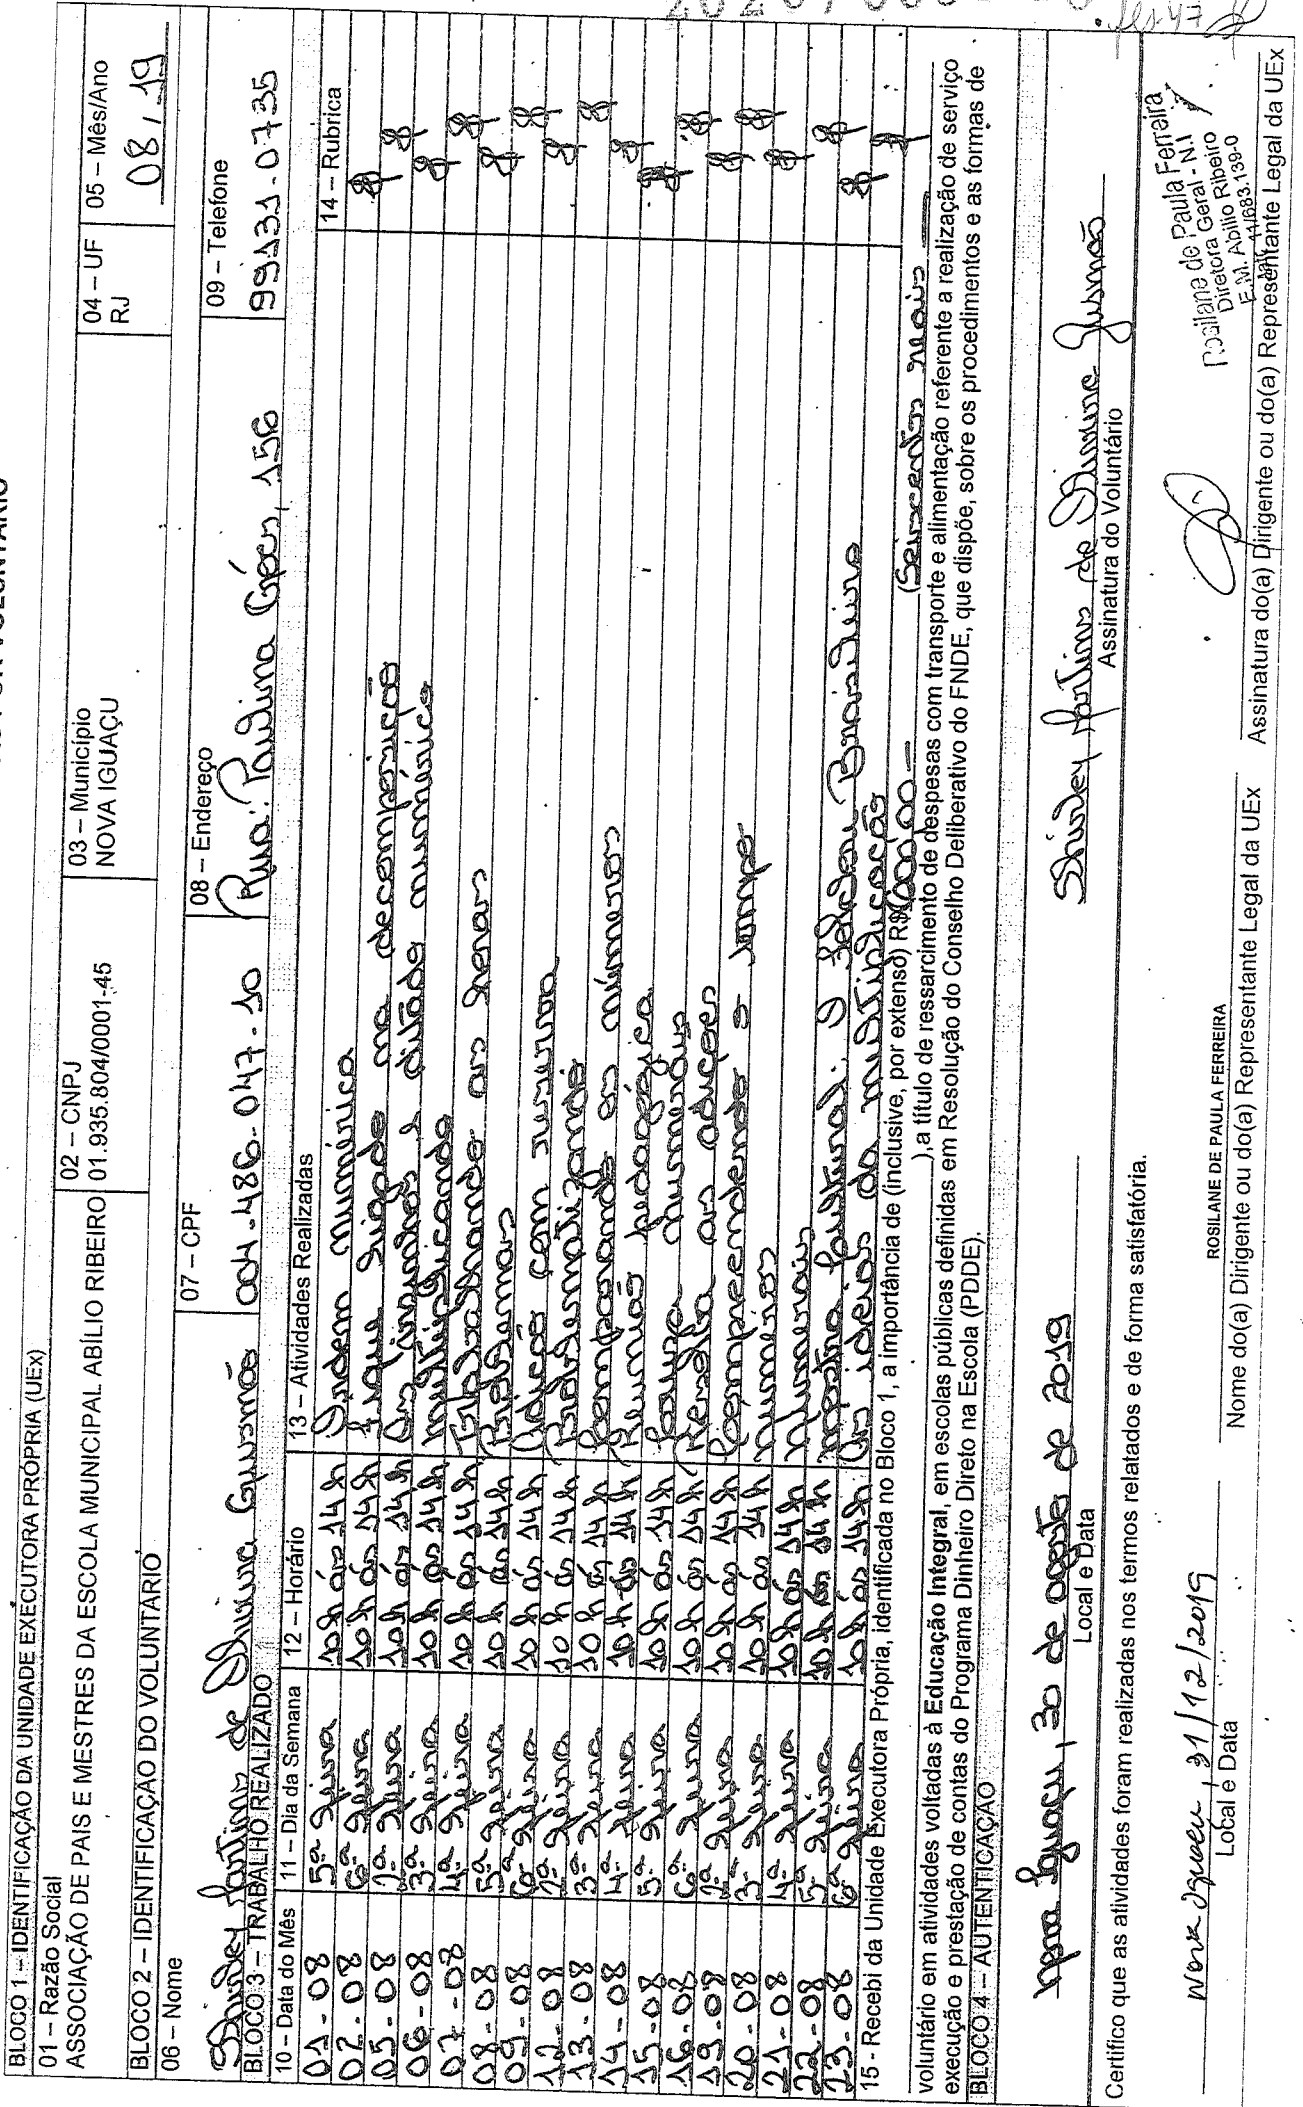 BLOCO 1 – IDENTIFICAÇÃO DA UNIDADE EXECUTORA PRÓPRIA (UEx)
01 – Razão Social
ASSOCIAÇÃO DE PAIS E MESTRES DA ESCOLA MUNICIPAL ABÍLIO RIBEIRO
02 – CNPJ
01.935.804/0001-45
03 – Município
NOVA IGUAÇU
04 – UF
RJ
05 – Mês/Ano
08, 19
BLOCO 2 – IDENTIFICAÇÃO DO VOLUNTÁRIO
06 – Nome
Shirley Martins de Oliveira Gusmão
07 – CPF
004.486.047.10
08 – Endereço
Rua: Paulina Góes, 156
09 – Telefone
99131.0735
BLOCO 3 – TRABALHO REALIZADO
10 – Data do Mês 11 – Dia da Semana 12 – Horário 13 – Atividades Realizadas 14 – Rubrica
01-08 5ª feira 10h às 14h Ordem numérica
02-08 6ª feira 10h às 14h Fique ligado na decomposição
05-08 2ª feira 10h às 14h Os vizinhos e ditado numérico
06-08 3ª feira 10h às 14h Multiplicando
07-08 4ª feira 10h às 14h Trabalhando as horas
08-08 5ª feira 10h às 14h Problemas
09-08 6ª feira 10h às 14h Adição com reserva
12-08 2ª feira 10h às 14h Problematizando
13-08 3ª feira 10h às 14h Comparando os números
14-08 4ª feira 10h às 14h Reunião pedagógica
15-08 5ª feira 10h às 14h numerais
16-08 6ª feira 10h às 14h Resolva as adições
19-08 2ª feira 10h às 14h Compreendendo o tempo
20-08 3ª feira 10h às 14h Números
21-08 4ª feira 10h às 14h Numerais
22-08 5ª feira 10h às 14h Mostra Cultural. O Folclore Brasileiro
23-08 6ª feira 10h às 14h As ideias da multiplicação
15 - Recebi da Unidade Executora Própria, identificada no Bloco 1, a importância de (inclusive, por extenso) R$ 600,00 (Seiscentos reais
), a título de ressarcimento de despesas com transporte e alimentação referente a realização de serviço
voluntário em atividades voltadas à Educação Integral, em escolas públicas definidas em Resolução do Conselho Deliberativo do FNDE, que dispõe, sobre os procedimentos e as formas de
execução e prestação de contas do Programa Dinheiro Direto na Escola (PDDE).
BLOCO 4 – AUTENTICAÇÃO
Nova Iguaçu, 30 de agosto de 2019
Local e Data
Shirley Martins de Oliveira Gusmão
Assinatura do Voluntário
Certifico que as atividades foram realizadas nos termos relatados e de forma satisfatória.
Nova Iguaçu, 31/12/2019
Local e Data
ROSILANE DE PAULA FERREIRA
Nome do(a) Dirigente ou do(a) Representante Legal da UEx
Rosilane de Paula Ferreira
Diretora Geral - N.I
E.M. Abílio Ribeiro
11/683.139-0
Assinatura do(a) Dirigente ou do(a) Representante Legal da UEx